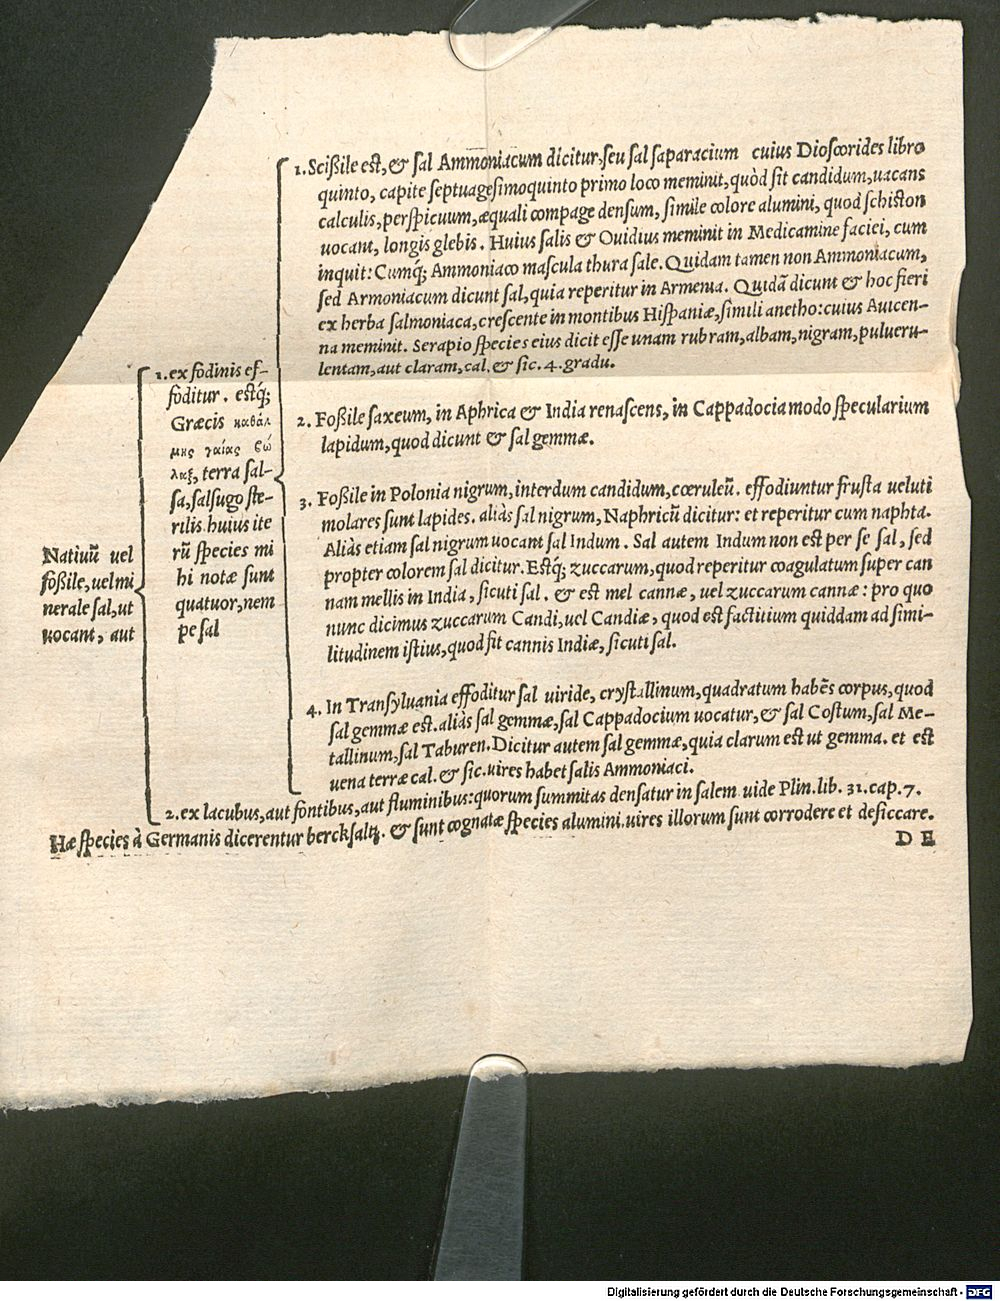 Natiuũ uel
foßile, uel mi
nerale sal, ut
uocant, aut
1. ex fodinis ef-
foditur. estq́;
Græcis
terra sal-
sa, salsugo ste-
rilis. huius ite
rũ species mi
hi notæ sunt
quatuor, nem
pe sal
1. Scißile est, & sal Ammoniacum dicitur, seu sal saparacium cuius Dioscorides libro
quinto, capite septuagesimoquinto primo loco meminit, quòd sit candidum, uacans
calculis, perspicuum, æquali compage densum, simile colore alumini, quod schiston
uocant, longis glebis. Huius salis & Ouidius meminit in Medicamine faciei, cum
inquit: Cumq́; Ammoniaco mascula thura sale. Quidam tamen non Ammoniacum,
sed Armoniacum dicunt sal, quia reperitur in Armenia. Quidã dicunt & hoc fieri
ex herba salmoniaca, crescente in montibus Hispaniæ, simili anetho: cuius Auicen-
na meminit. Serapio species eius dicit esse unam rubram, albam, nigram, puluеru-
lentam, aut claram, cal. & sic. 4. gradu.
2. Foßile saxeum, in Aphrica & India renascens, in Cappadocia modo specularium
lapidum, quod dicunt & sal gemmæ.
3. Foßile in Polonia nigrum, interdum candidum, cœruleũ. effodiuntur frusta ueluti
molares sunt lapides. aliàs sal nigrum, Naphricũ dicitur: et reperitur cum naphta.
Aliàs etiam sal nigrum uocant sal Indum. Sal autem Indum non est per se sal, sed
propter colorem sal dicitur. Estq́; zuccarum, quod reperitur coagulatum super can
nam mellis in India, sicuti sal. & est mel cannæ, uel zuccarum cannæ: pro quo
nunc dicimus zuccarum Candi, uel Candiæ, quod est factitium quiddam ad simi-
litudinem istius, quod fit cannis Indiæ, sicuti sal.
4. In Transyluania effoditur sal uiride, crystallinum, quadratum habẽs corpus, quod
sal gemmæ est. aliàs sal gemmæ, sal Cappadocium uocatur, & sal Costum, sal Me-
tallinum, sal Taburen. Dicitur autem sal gemmæ, quia clarum est ut gemma. et est
uena terræ cal. & sic. uires habet salis Ammoniaci.
2. ex lacubus, aut fontibus, aut fluminibus: quorum summitas densatur in salem uide Plin. lib. 31. cap. 7.
Hæ species à Germanis dicerentur bercksaltz. & sunt cognatæ species alumini. uires illorum sunt corrodere et desiccare.
D E
Digitalisierung gefördert durch die Deutsche Forschungsgemeinschaft - DFG